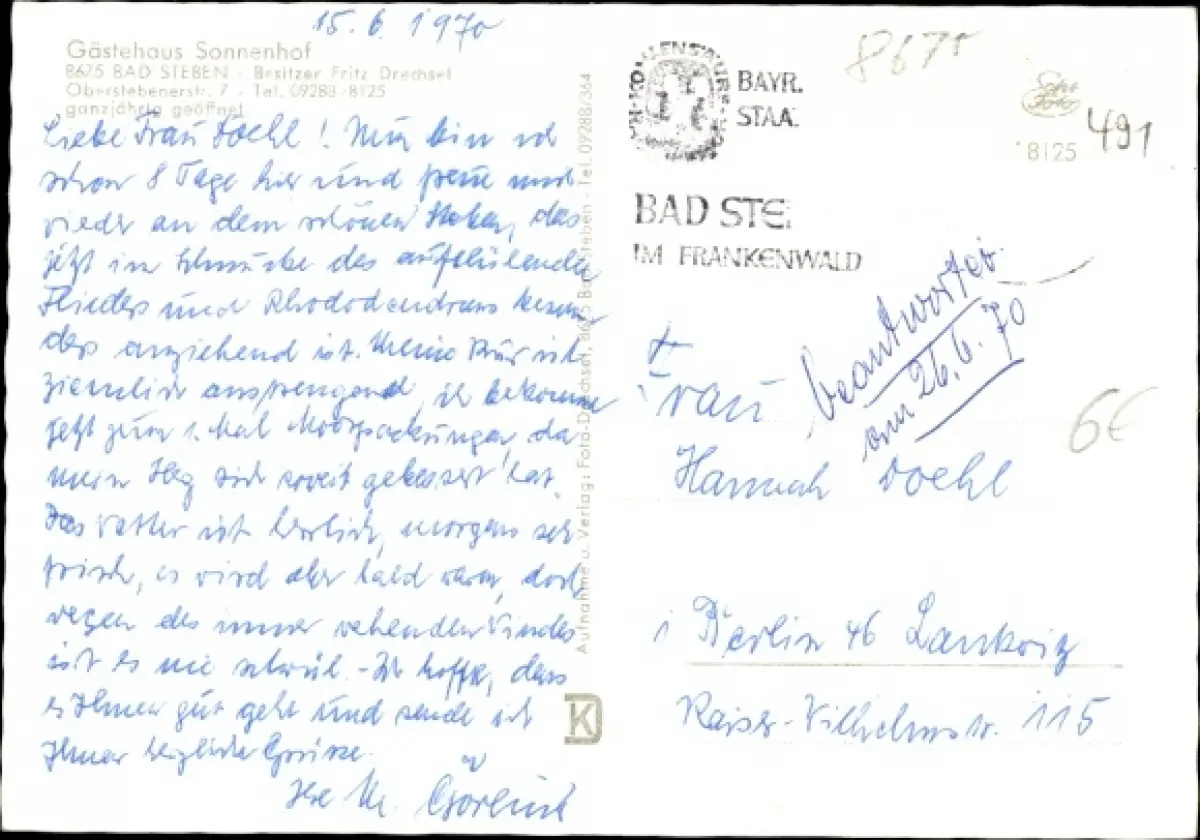 15.6.1970
Gästehaus Sonnenhof
8675 BAD STEBEN · Besitzer Fritz Drechsel
Oberstebenerstr. 7 · Tel. 09288/8125
ganzjährig geöffnet
Liebe Frau Doehl! Nun bin ich
schon 8 Tage hier und freue mich
wieder an dem schönen Steben, das
jetzt im Schmucke des aufblühenden
Flieders und Rhododendrons beson-
ders anziehend ist. Meine Kur ist
ziemlich anstrengend, ich bekomme
jetzt zum 1. Mal Moorpackungen, da
mein Herz sich soweit gebessert hat.
Das Wetter ist herrlich, morgens sehr
frisch, es wird aber bald warm, doch
wegen des immer wehenden Windes
ist es nie schwül. - Ich hoffe, dass
es Ihnen gut geht und sende ich
Ihnen herzliche Grüsse.
Ihre M.
Aufnahme u. Verlag: Foto-Drechsel, 8675 Bad Steben - Tel. 09288/364
BAYR.
STAA
BAD STE
IM FRANKENWALD
8675
8125
491
beantwortet
am 26.6.70
6€
Frau
Hannah Doehl
1 Berlin 46 Lankwitz
Kaiser-Wilhelmstr. 115